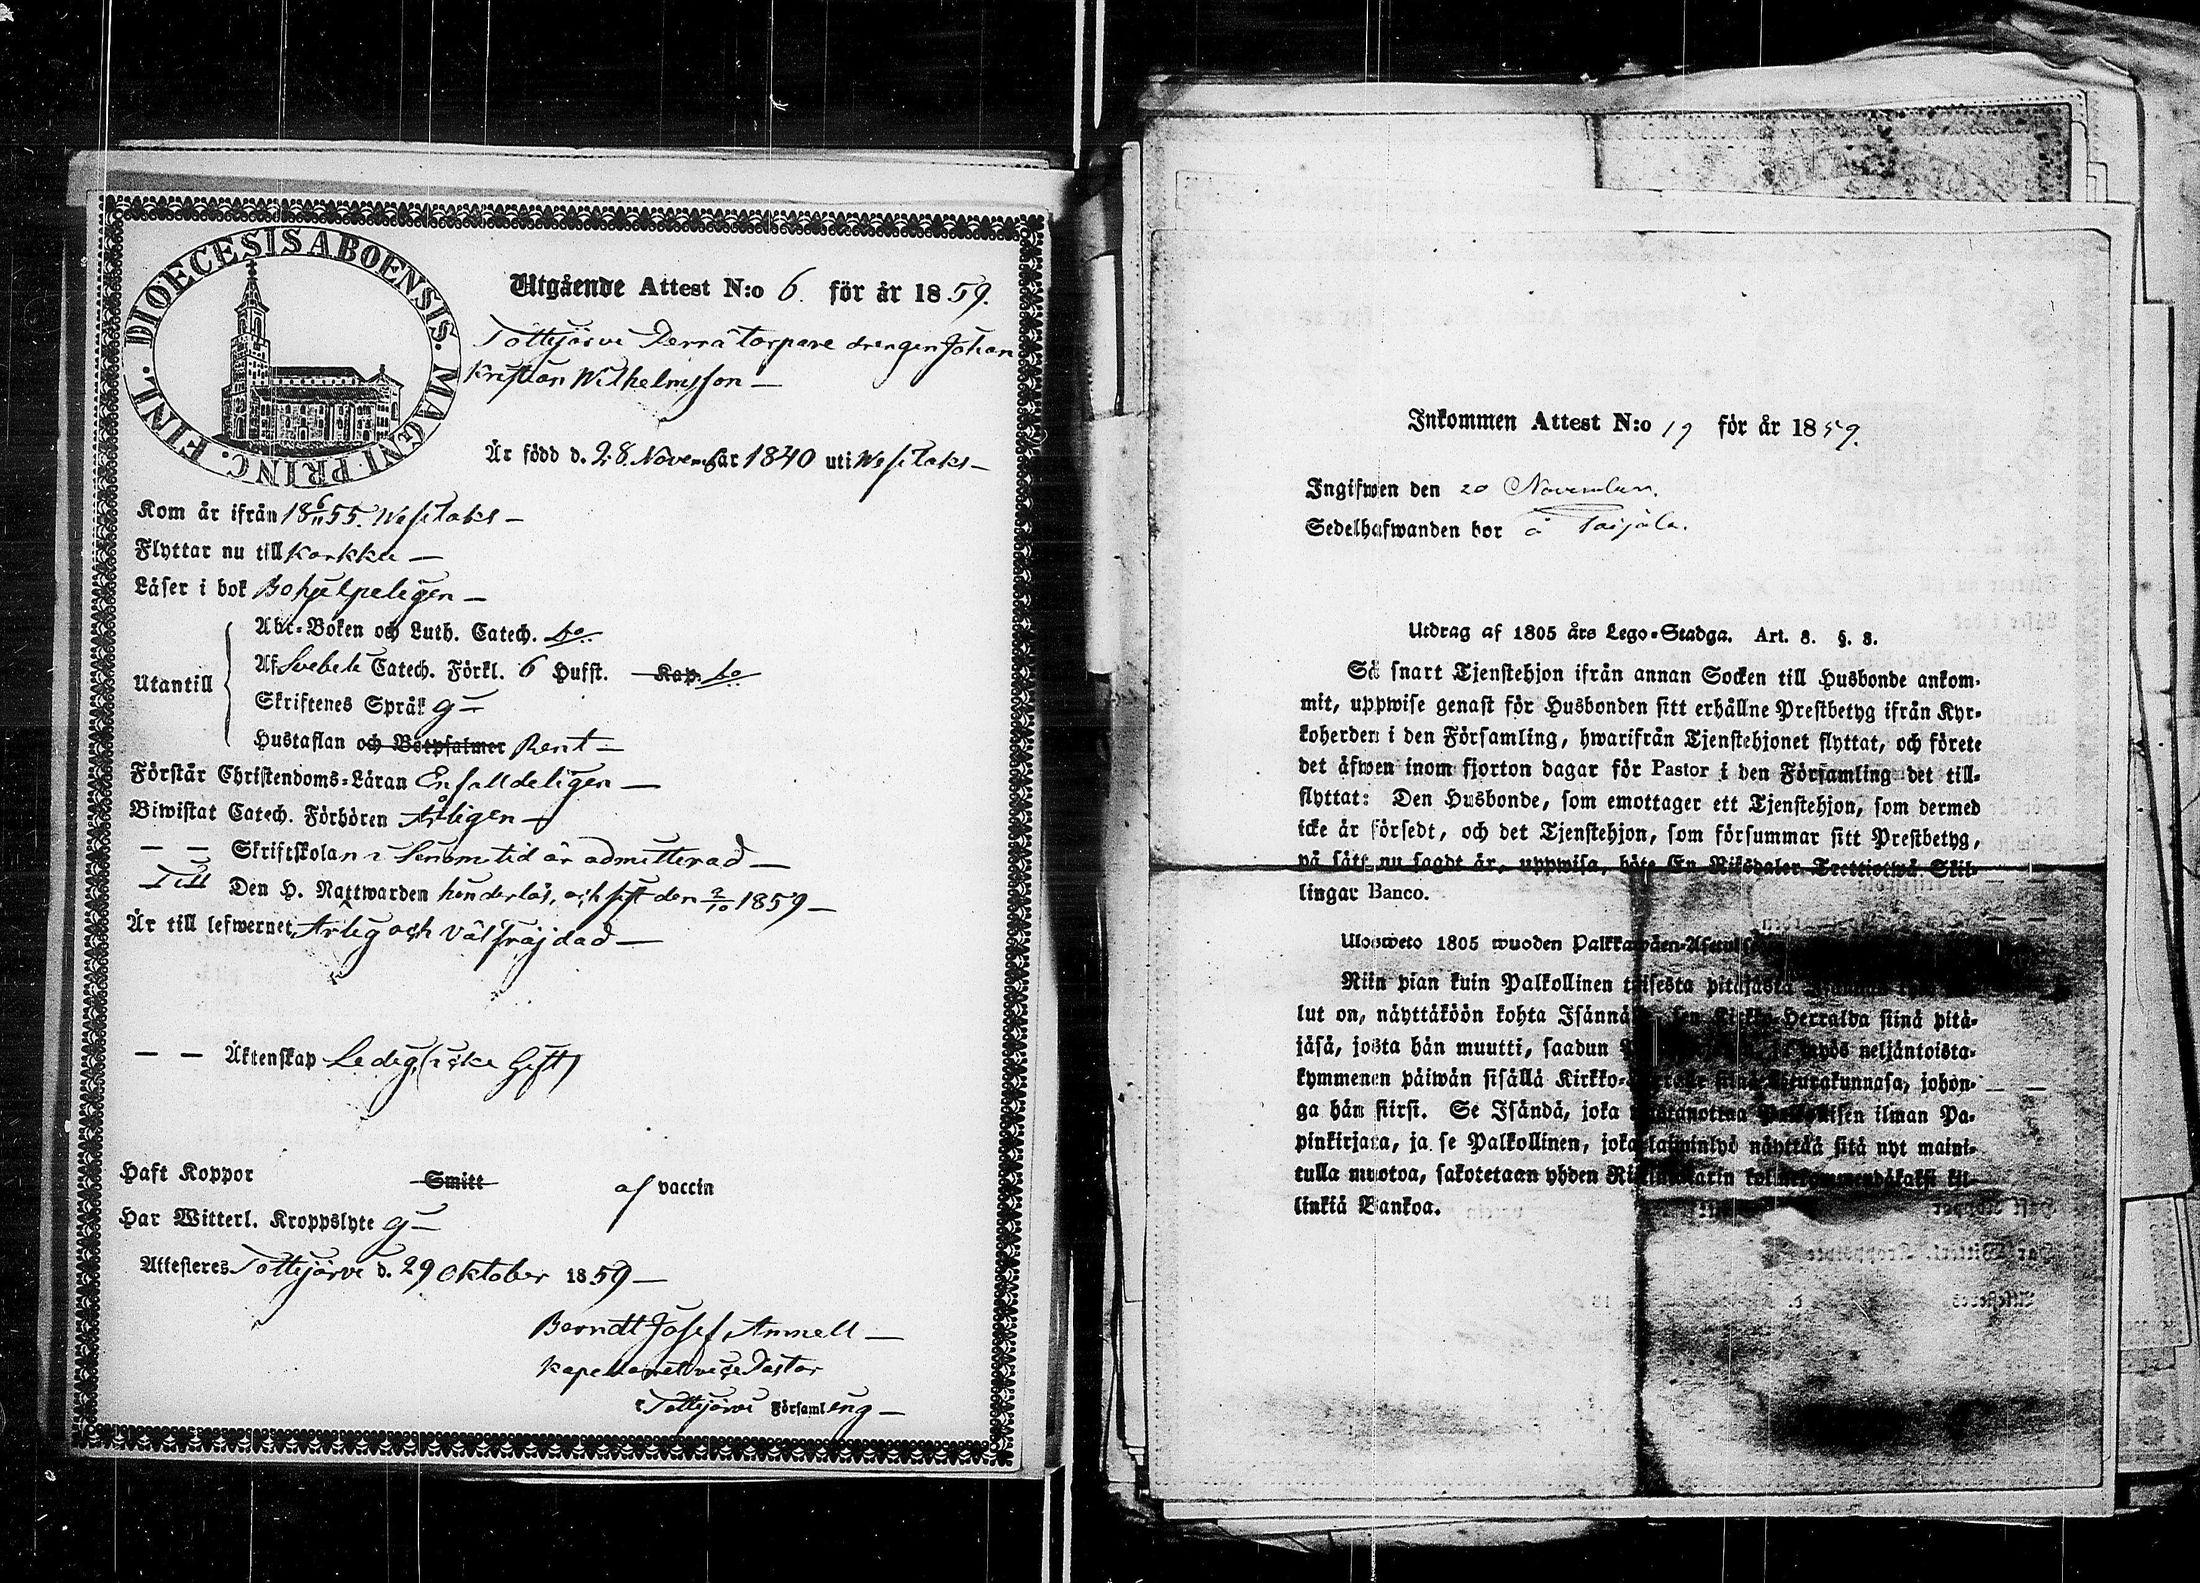 DIOECESIS ABOENSIS. MAGNI PRINC. FINL.
Utgående Attest N:o 6. för år 1859.
Tottijärvi Perrå torpare drengen Johan
Kristian Wilhelmsson —
Är född d. 28 November 1840 uti Wesilaks —
Kom år ifrån 18 6/11 55. Wesilaks —
Flyttar nu till Karkku —
Läser i bok Bohjelpeligen —
Utantill
Abc-Boken och Luth. Catech. do.
Af Svebeli Catech. Förkl. 6 Hufst. Kap. do
Skriftenes Språk g —
Hustaflan och Botpsalmer Rent —
Förstår Christendoms-Läran Enfalldeligen —
Biwistat Catech. Förhören Årligen —
— — Skriftskolan i senom tid är admitterad —
Till Den H. Nattwarden hinderlös, och sist den 2/10 1859 —
Är till lefwernet Ärlig och Väl fräjdad —
— — Äktenskap Ledig, (icke Gift)
Haft Koppor Smitt af vaccin
Har Witterl. Kroppslyte g —
Attesteres Tottijärvi d. 29 Oktober 1859 —
Berndt Josef Anmell —
Kapellan ett vice Pastor
i Tottijärvi Församling —
Inkommen Attest N:o 19 för år 1859.
Ingifwen den 20 November.
Sedelhafwanden bor å
Utdrag af 1805 års Lego-Stadga. Art. 8. §. 8.
Så snart Tjenstehjon ifrån annan Socken till Husbonde ankom-
mit, uppwise genast för Husbonden sitt erhållne Prestbetyg ifrån Kyr-
koherden i den Församling, hwarifrån Tjenstehjonet flyttat, och förete
det äfwen inom fjorton dagar för Pastor i den Församling det till-
flyttat: Den Husbonde, som emottager ett Tjenstehjon, som dermed
icke är försedt, och det Tjenstehjon, som försummar sitt Prestbetyg,
på sätt nu sagdt är, uppwisa, böte En Riksdaler Trettiotwå Skil-
lingar Banco.
Ulosweto 1805 wuoden Palkkawäen-
Niin pian kuin Palkollinen toisesta pitäjästä
lut on, näyttäköön kohta Isännä sen Kirkko-Herralda siinä pitä-
jäsä, josta hän muutti, saadun myös neljäntoista-
kymmenen päiwän sisällä Kirkko- siinä Seurakunnasa, johon-
ga hän siirsi. Se Isändä, joka Palkollisen ilman Pa-
pinkirjata, ja se Palkollinen, joka laiminlyö näyttää sitä nyt maini-
tulla muotoa, sakotetaan yhden Riksdalarin kil-
linkiä Bankoa.